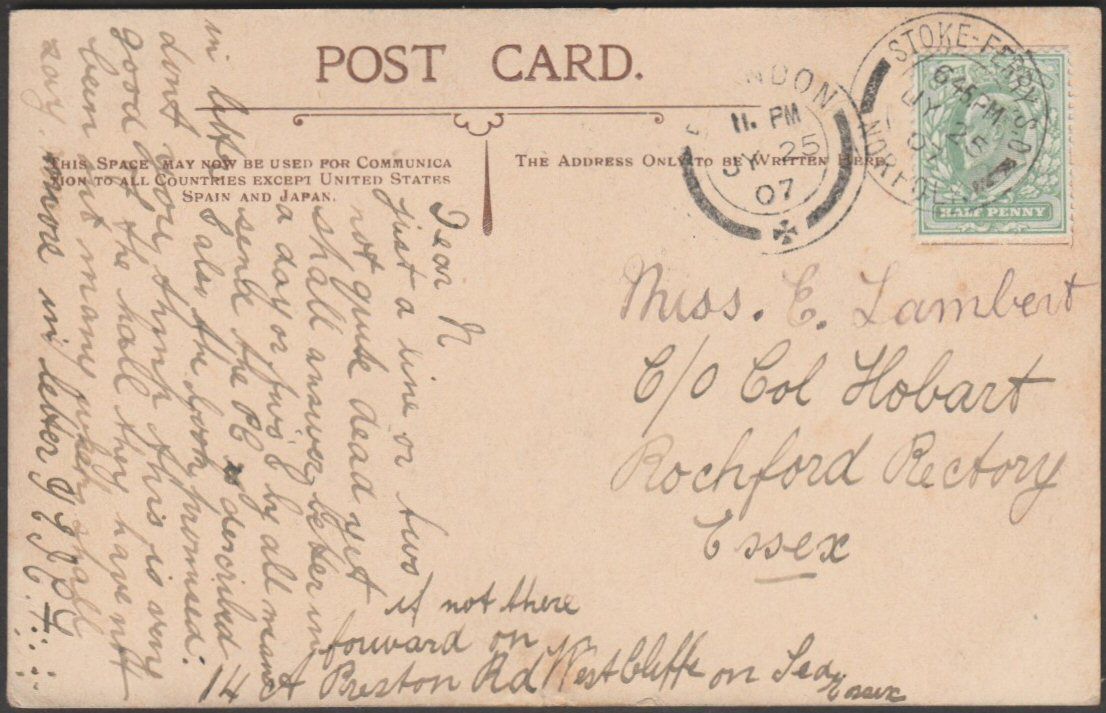 POST CARD.
THIS SPACE MAY NOW BE USED FOR COMMUNICA
TION TO ALL COUNTRIES EXCEPT UNITED STATES
SPAIN AND JAPAN.
THE ADDRESS ONLY TO BE WRITTEN HERE
LONDON
11. PM
JY 25
07
STOKE-FERRY S.O.
6 45 PM
JY 25
07
NORFOLK
HALF PENNY
Miss. E. Lambert
C/O Col Hobart
Rochford Rectory
Essex
if not there
forward on
14 A Preston Rd West Cliffe on Sea
Essex
Dear N
just a line or two
not quite dead yet
shall answer letter in
a day or two, by all means
send the PC described
& also the book promised.
in letter
dont you think this is very
good of the hall they have not
been out many
say. more in letter